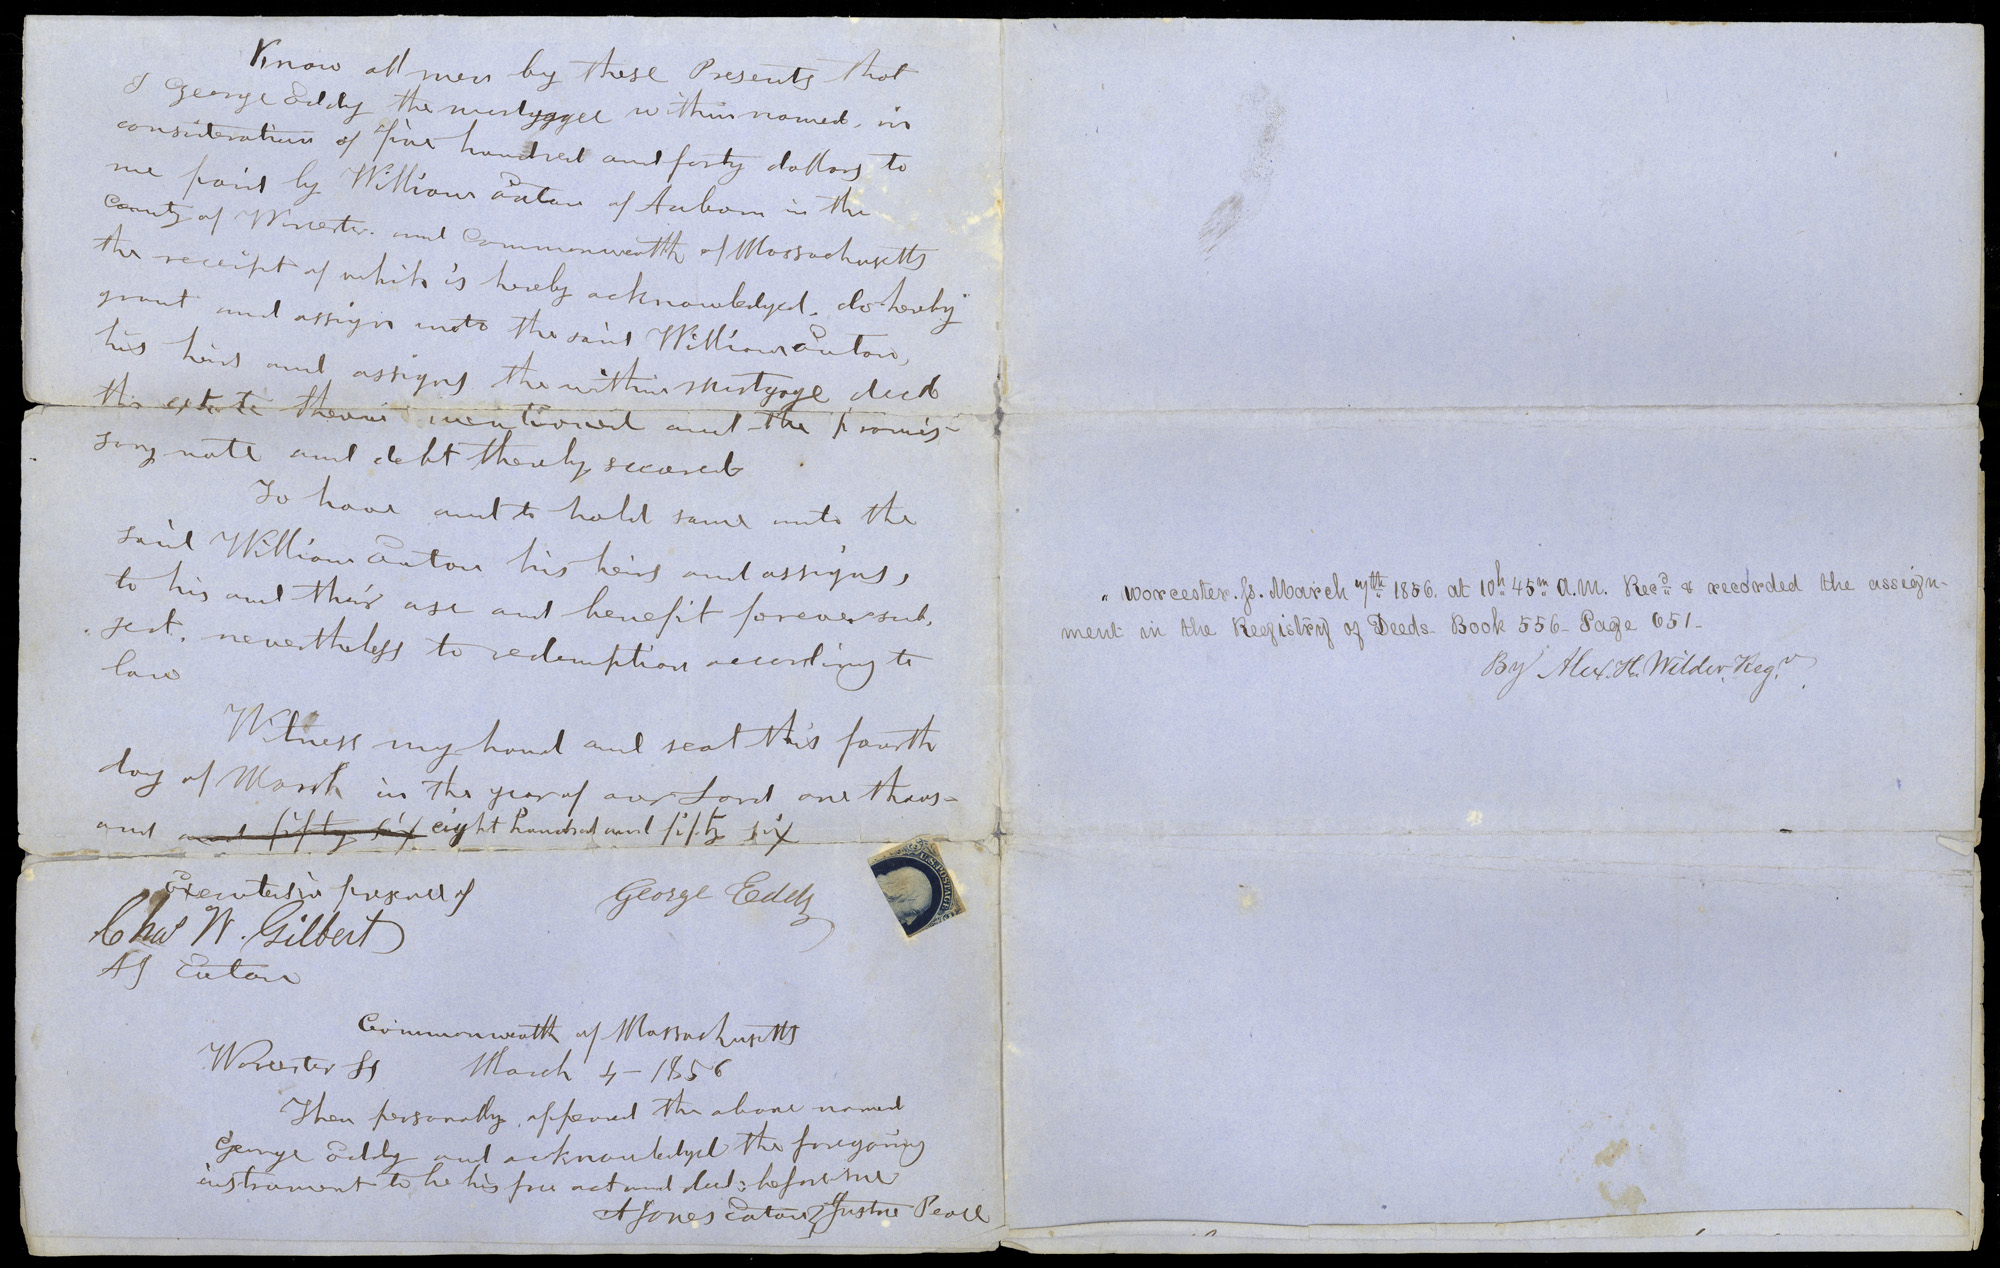 Know all men by these Presents that
I George Eddy the mortgagee within named, in
consideration of five hundred and forty dollars to
me paid by William Eaton of Auburn in the
County of Worcester and Commonwealth of Massachusetts
the receipt of which is hereby acknowledged, do hereby
grant and assign unto the said William Eaton,
his heirs and assigns the within Mortgage deed
the estate therein mentioned and the promis-
sory note and debt thereby secured
To have and to hold same unto the
said William Eaton his heirs and assigns,
to his and their use and benefit forever sub-
ject, nevertheless to redemption according to
law
Witness my hand and seal this fourth
day of March in the year of our Lord one thous-
and and fifty six eight hundred and fifty six
Executed in presence of
George Eddy
U.S. POSTAGE
Chas W. Gilbert
AJ Eaton
Commonwealth of Massachusetts
Worcester Ss March 4 - 1856
Then personally appeared the above named
George Eddy and acknowledged the foregoing
instrument to be his free act and deed: before me
A Jones Eaton Justice Peace
Worcester. Ss. March 7th 1856. at 10h 45m A.M. Recd & recorded the assign-
ment in the Registry of Deeds. Book 556 - Page 651 -
By Alex. H. Wilder, Regr.